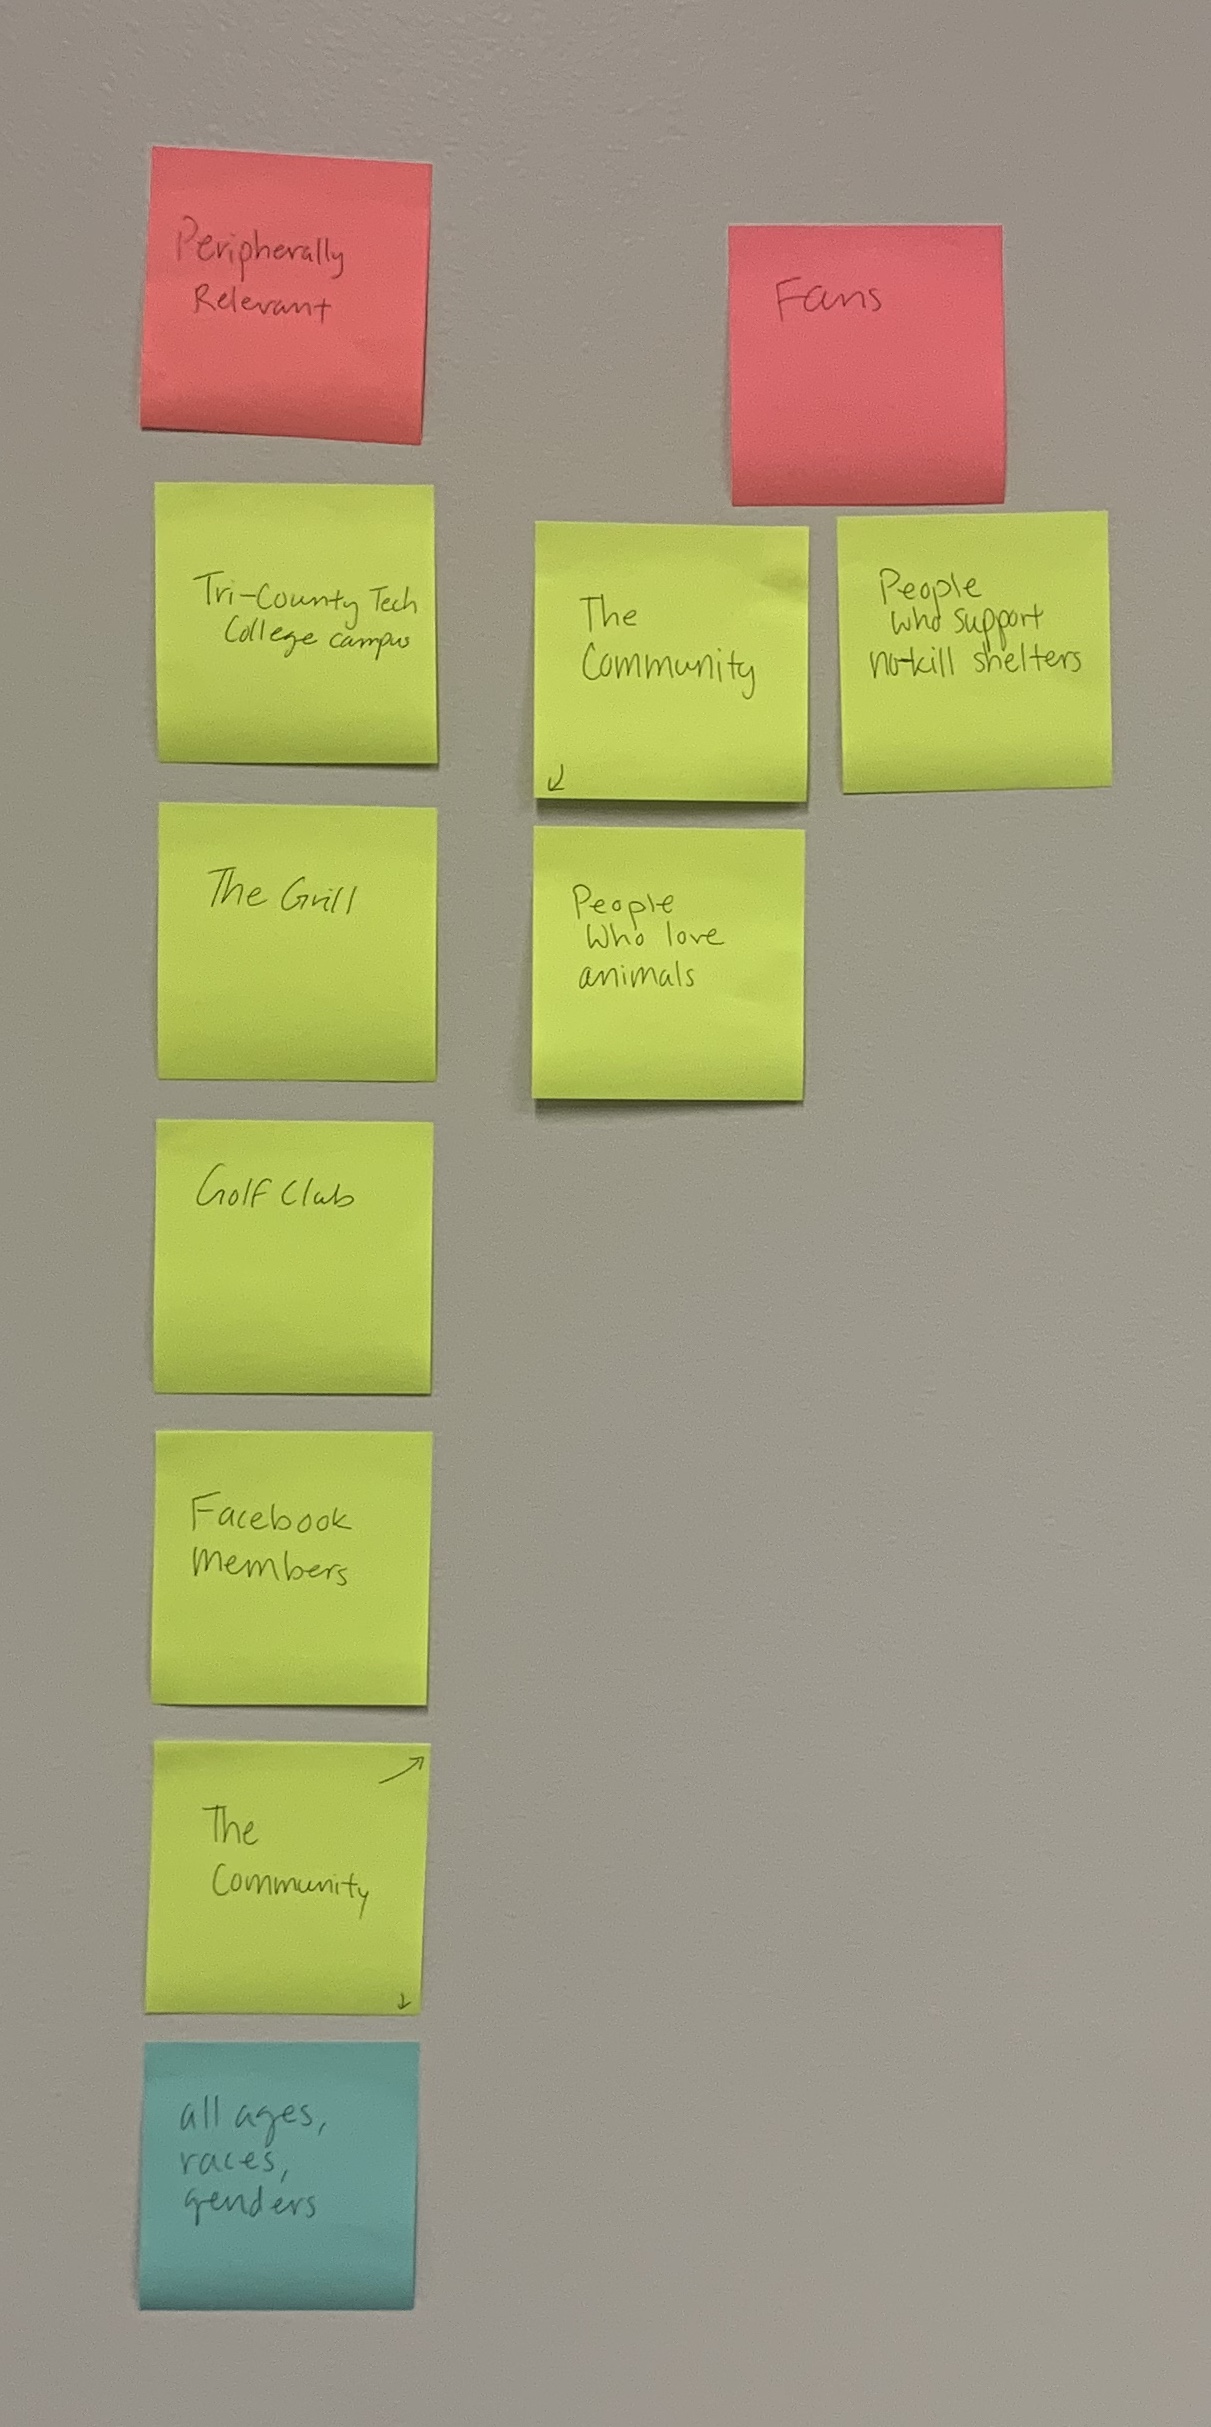 Peripherally
Relevant
Tri-County Tech
College campus
The Grill
Golf Club
Facebook
members
The
Community
all ages,
races,
genders
Fans
The
Community
People
who love
animals
People
who support
no-kill shelters